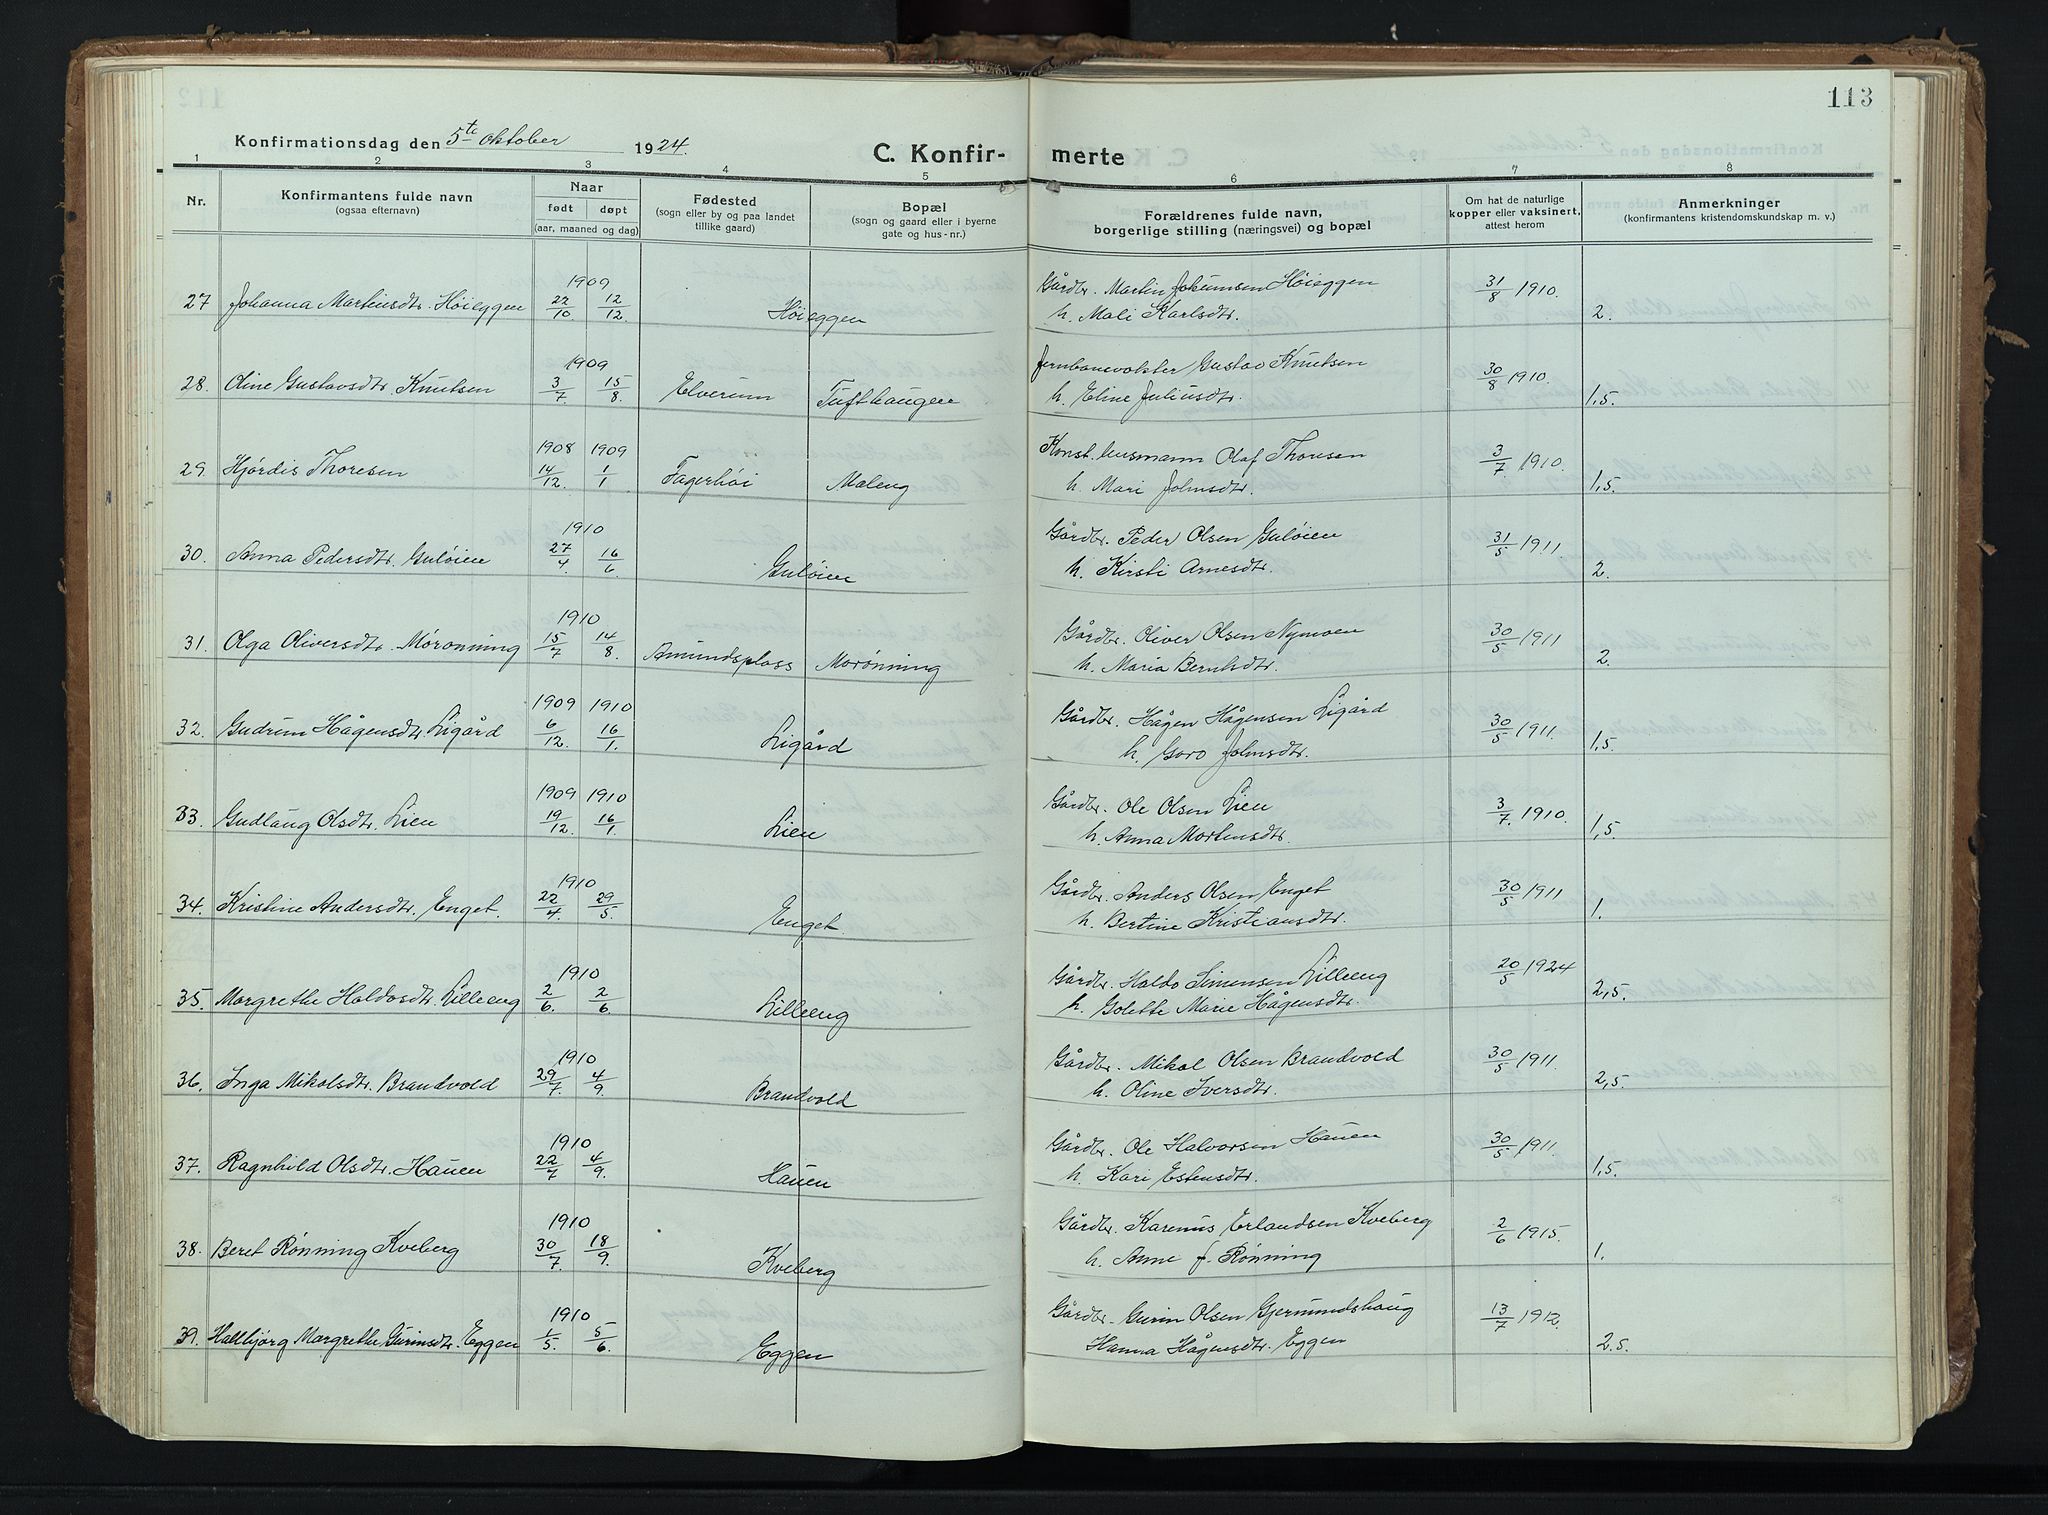 113
Konfirmationsdag den 5te oktober 1924.
C. Konfir- merte
1 2 3 4 5 6 7 8
Nr.
Konfirmantens fulde navn
(ogsaa efternavn)
Naar
født døpt
(aar, maaned og dag)
Fødested
(sogn eller by og paa landet
tillike gaard)
Bopæl
(sogn og gaard eller i byerne
gate og hus-nr.)
Forældrenes fulde navn,
borgerlige stilling (næringsvei) og bopæl
Om hat de naturlige
kopper eller vaksinert,
attest herom
Anmerkninger
(konfirmantens kristendomskundskap m. v.)
1909
27 Johanna Martinsdtr. Høieggen 22/10 12/12 Høieggen
Gårdbr. Martin Johannsen Høieggen 31/8 1910.
h. Mali Karlsdtr. 2.
1909
28. Oline Gustavsdtr. Knutsen 3/7 15/8. Elverum Tufthaugen
Jernbanevokter Gustav Knutsen 30/8 1910.
h. Eline Juliusdtr. 1,5.
1908 1909
29. Hjørdis Thoresen 14/12. 1/1 Fagerhøi Maleng
Konst. lensmann Olaf Thoresen 3/7 1910.
h. Mari Johnsdtr. 1,5.
1910
30. Anna Pedersdtr. Guløien 27/4 16/6 Guløien
Gårdbr. Peder Olsen Guløien 31/5 1911.
h. Kirsti Arnesdtr. 2.
1910
31. Olga Oliversdtr. Mørønning 15/7 14/8 Amundsplass Morønning
Gårdbr. Oliver Olsen Nymoen 30/5 1911
h. Maria Bernhsdtr. 2.
1909 1910
32. Gudrun Hågensdtr. Ligård 6/12. 16/1. Ligård
Gårdbr. Hågen Hågensen Ligård 30/5 1911.
h. Goro Johnsdtr. 1,5.
1909 1910
33. Gudlaug Olsdtr. Lien 19/12. 16/1 Lien
Gårdbr. Ole Olsen Lien 3/7. 1910.
h. Anna Mortensdtr. 1,5
1910
34. Kristine Andersdtr. Enget. 22/4. 29/5 Enget.
Gårdbr. Anders Olsen Enget 30/5 1911
h. Bertine Kristiansdtr. 1.
1910
35. Margrethe Haldosdtr. Lilleeng 2/6. 2/6 Lilleeng
Gårdbr. Haldo Simensen Lilleeng 20/5 1924
h. Golette Marie Hågensdtr. 2,5.
1910
36. Inga Mikalsdtr. Brandvold 29/7. 4/9. Brandvold
Gårdbr. Mikal Olsen Brandvold 30/5 1911.
h. Oline Iversdtr. 2,5.
1910
37. Ragnhild Olsdtr. Hauen 22/7 4/9. Hauen
Gårdbr. Ole Halvorsen Hauen 30/5 1911.
h. Kari Estensdtr. 1,5.
1910
38. Beret Rønning Kveberg 30/7. 18/9. Kveberg
Gårdbr. Karenus Erlandsen Kveberg 2/6 1915.
h. Anne f. Rønning 1.
1910
39. Hallbjørg Margrethe Gurinsdtr. Eggen 1/5. 5/6 Eggen
Gårdbr. Gurin Olsen Gjermundshaug 13/7 1912.
Hanna Hågensdtr. Eggen 2.5.